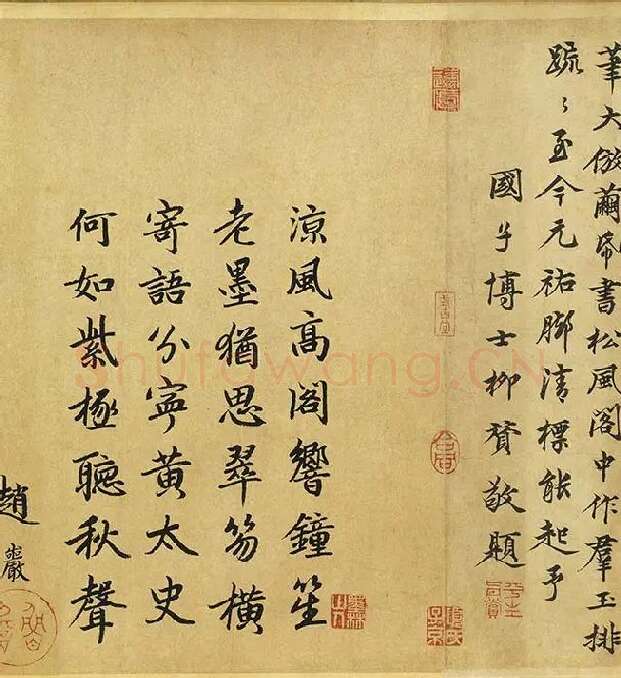 筆大倣繭帋書松風閣中作羣玉排
踈〻至今元祐脚清標能起予
國子博士柳贇敬題
涼風高閣響鐘笙
老墨猶思翠笏橫
寄語分寧黃太史
何如紫極聽秋聲
趙巖
Shufawang.CN